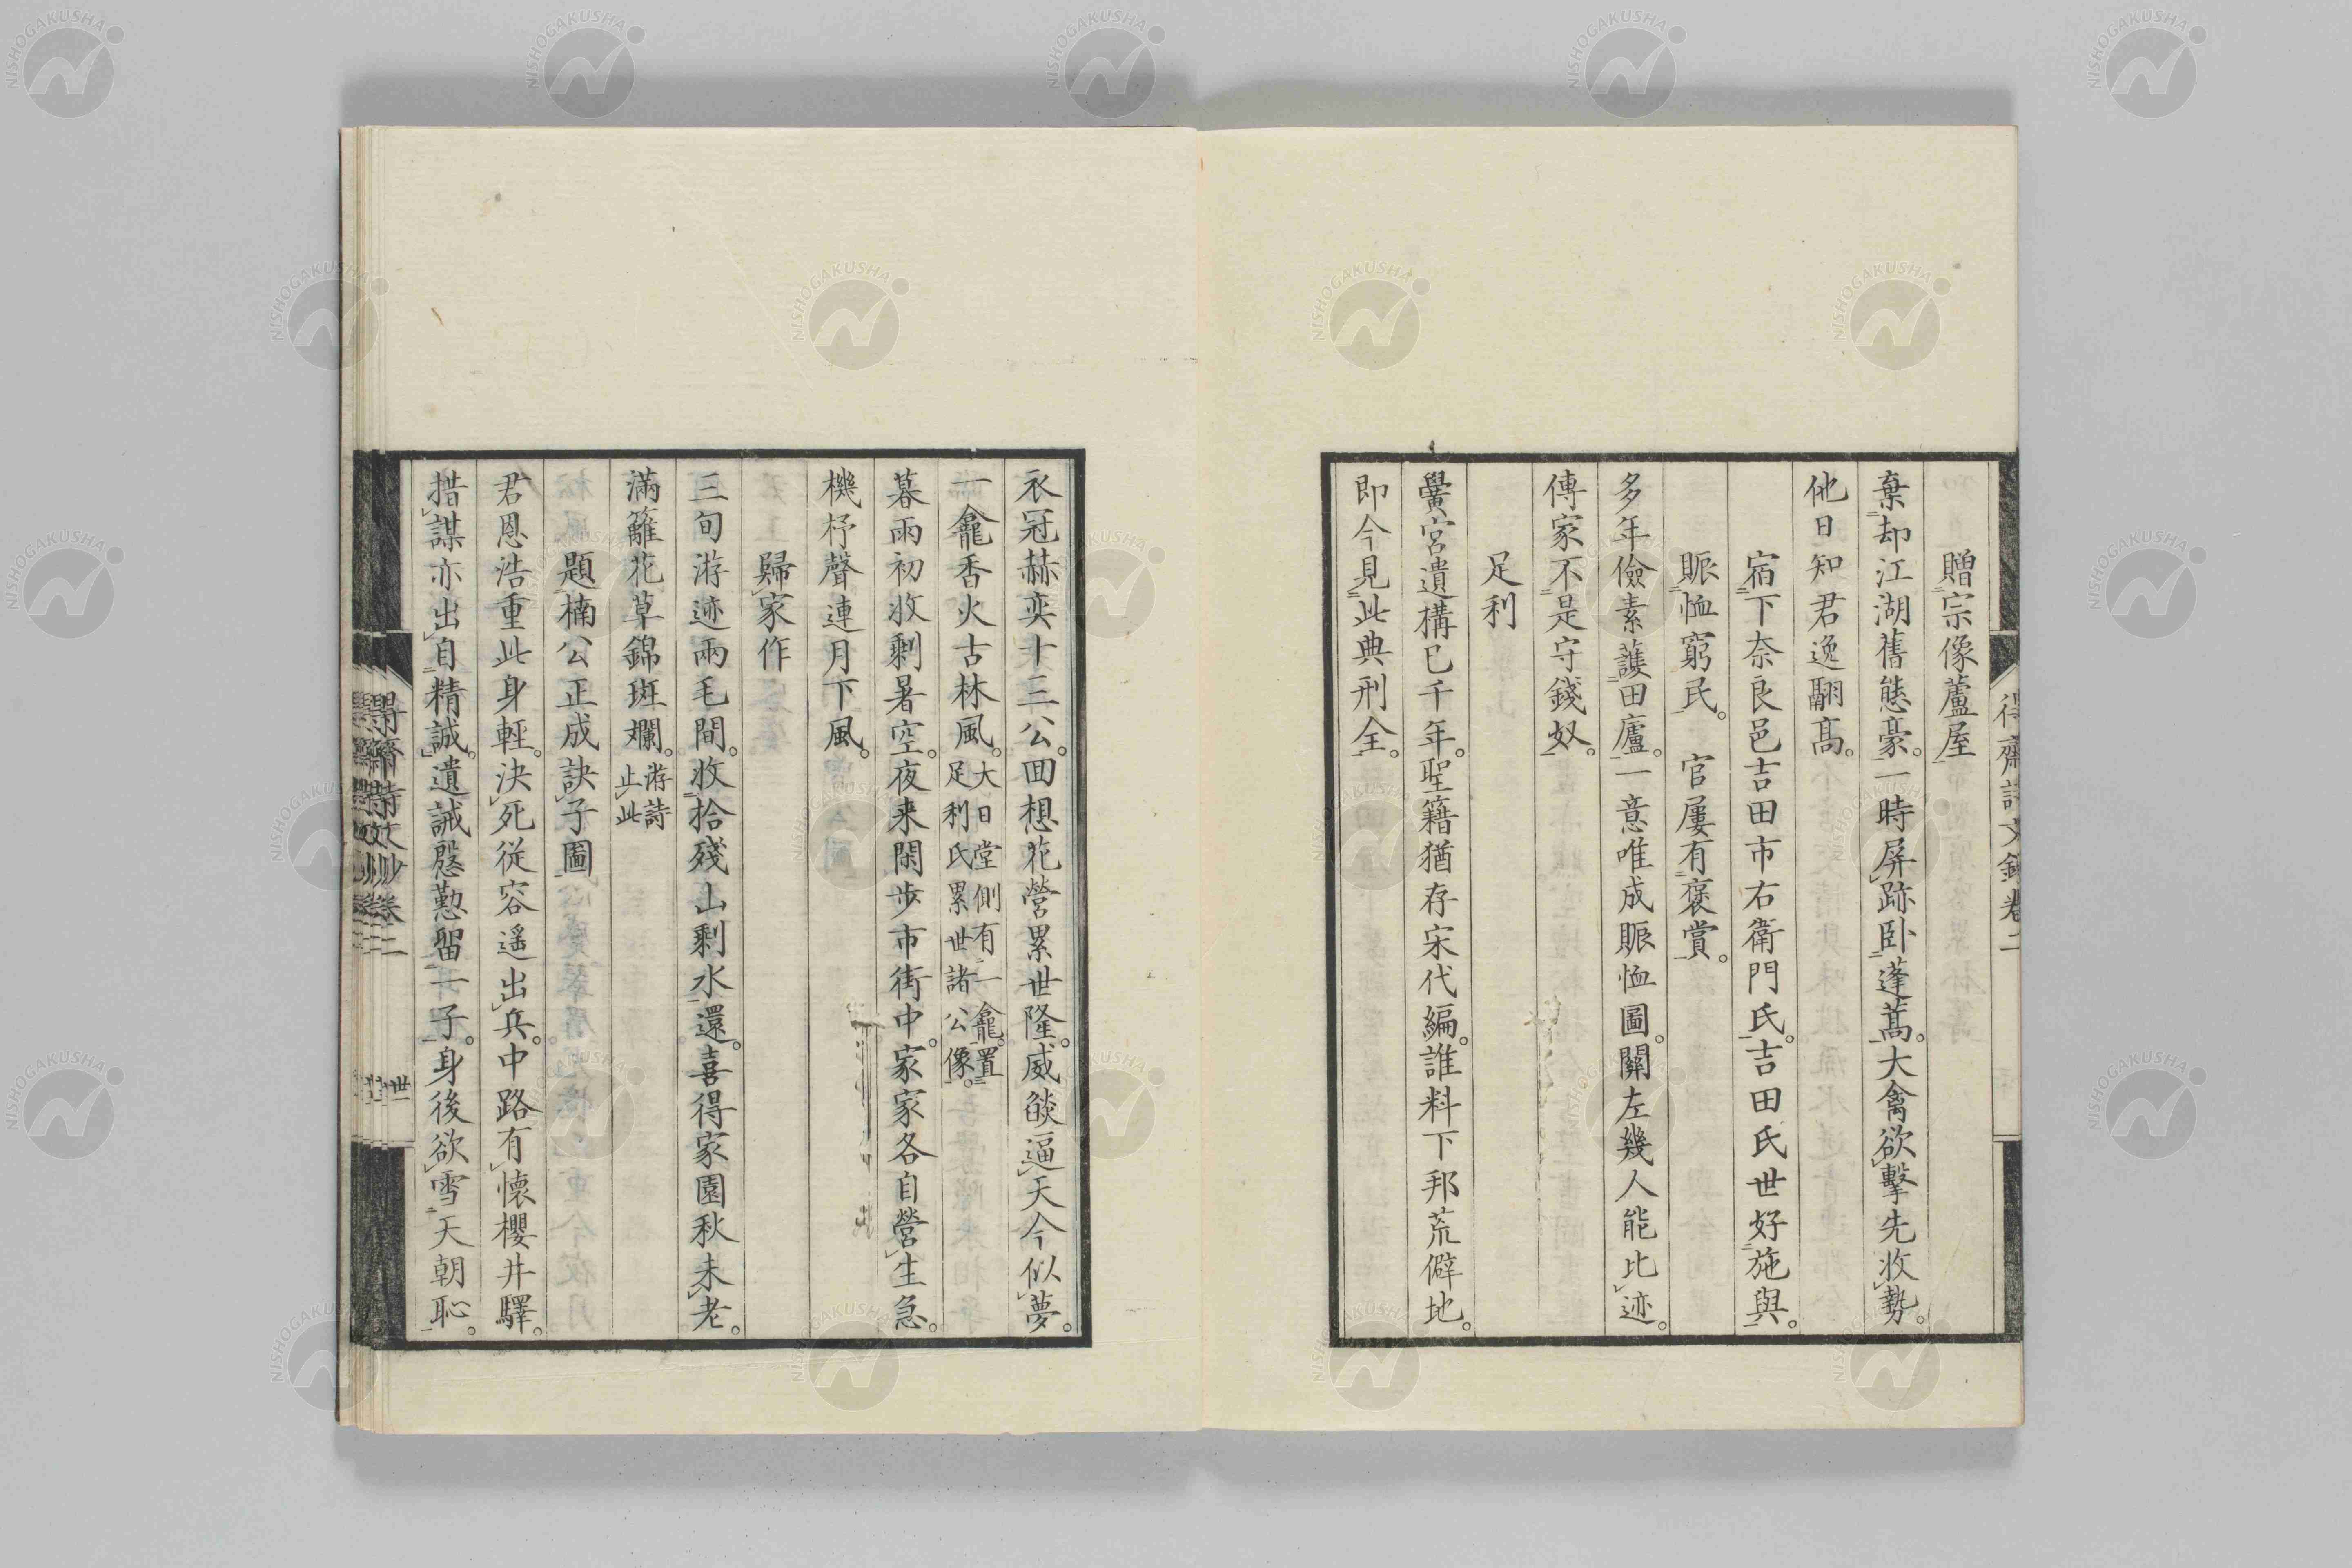 贈宗像蘆屋
棄却江湖舊態豪。一時屏跡臥蓬蒿。大禽欲擊先收勢。
他日知君逸翮高。
宿下奈良邑吉田市右衛門氏。吉田氏世好施與。
賑恤窮民。官屢有褒賞。
多年儉素護田廬。一意唯成賑恤圖。關左幾人能比迹。
傳家不是守錢奴。
足利
黌宮遺構已千年。聖籍猶存宋代編。誰料下邦荒僻地。
即今見此典刑全。
衣冠赫奕十三公。回想花營累世隆。威燄逼天今似夢。
一龕香火古林風。大日堂側有一龕。置
足利氏累世諸公像。
暮雨初收剩暑空。夜来閑步市街中。家家各自營生急。
機杼聲連月下風。
歸家作
三旬游迹兩毛間。收拾殘山剩水還。喜得家園秋未老。
滿籬花草錦斑斕。游詩
止此
題楠公正成訣子圖
君恩浩重此身輕。決死從容遥出兵。中路有懷櫻井驛。
措謀亦出自精誠。遺誡慇懃留一子。身後欲雪天朝恥。
NISHOGAKUSHA